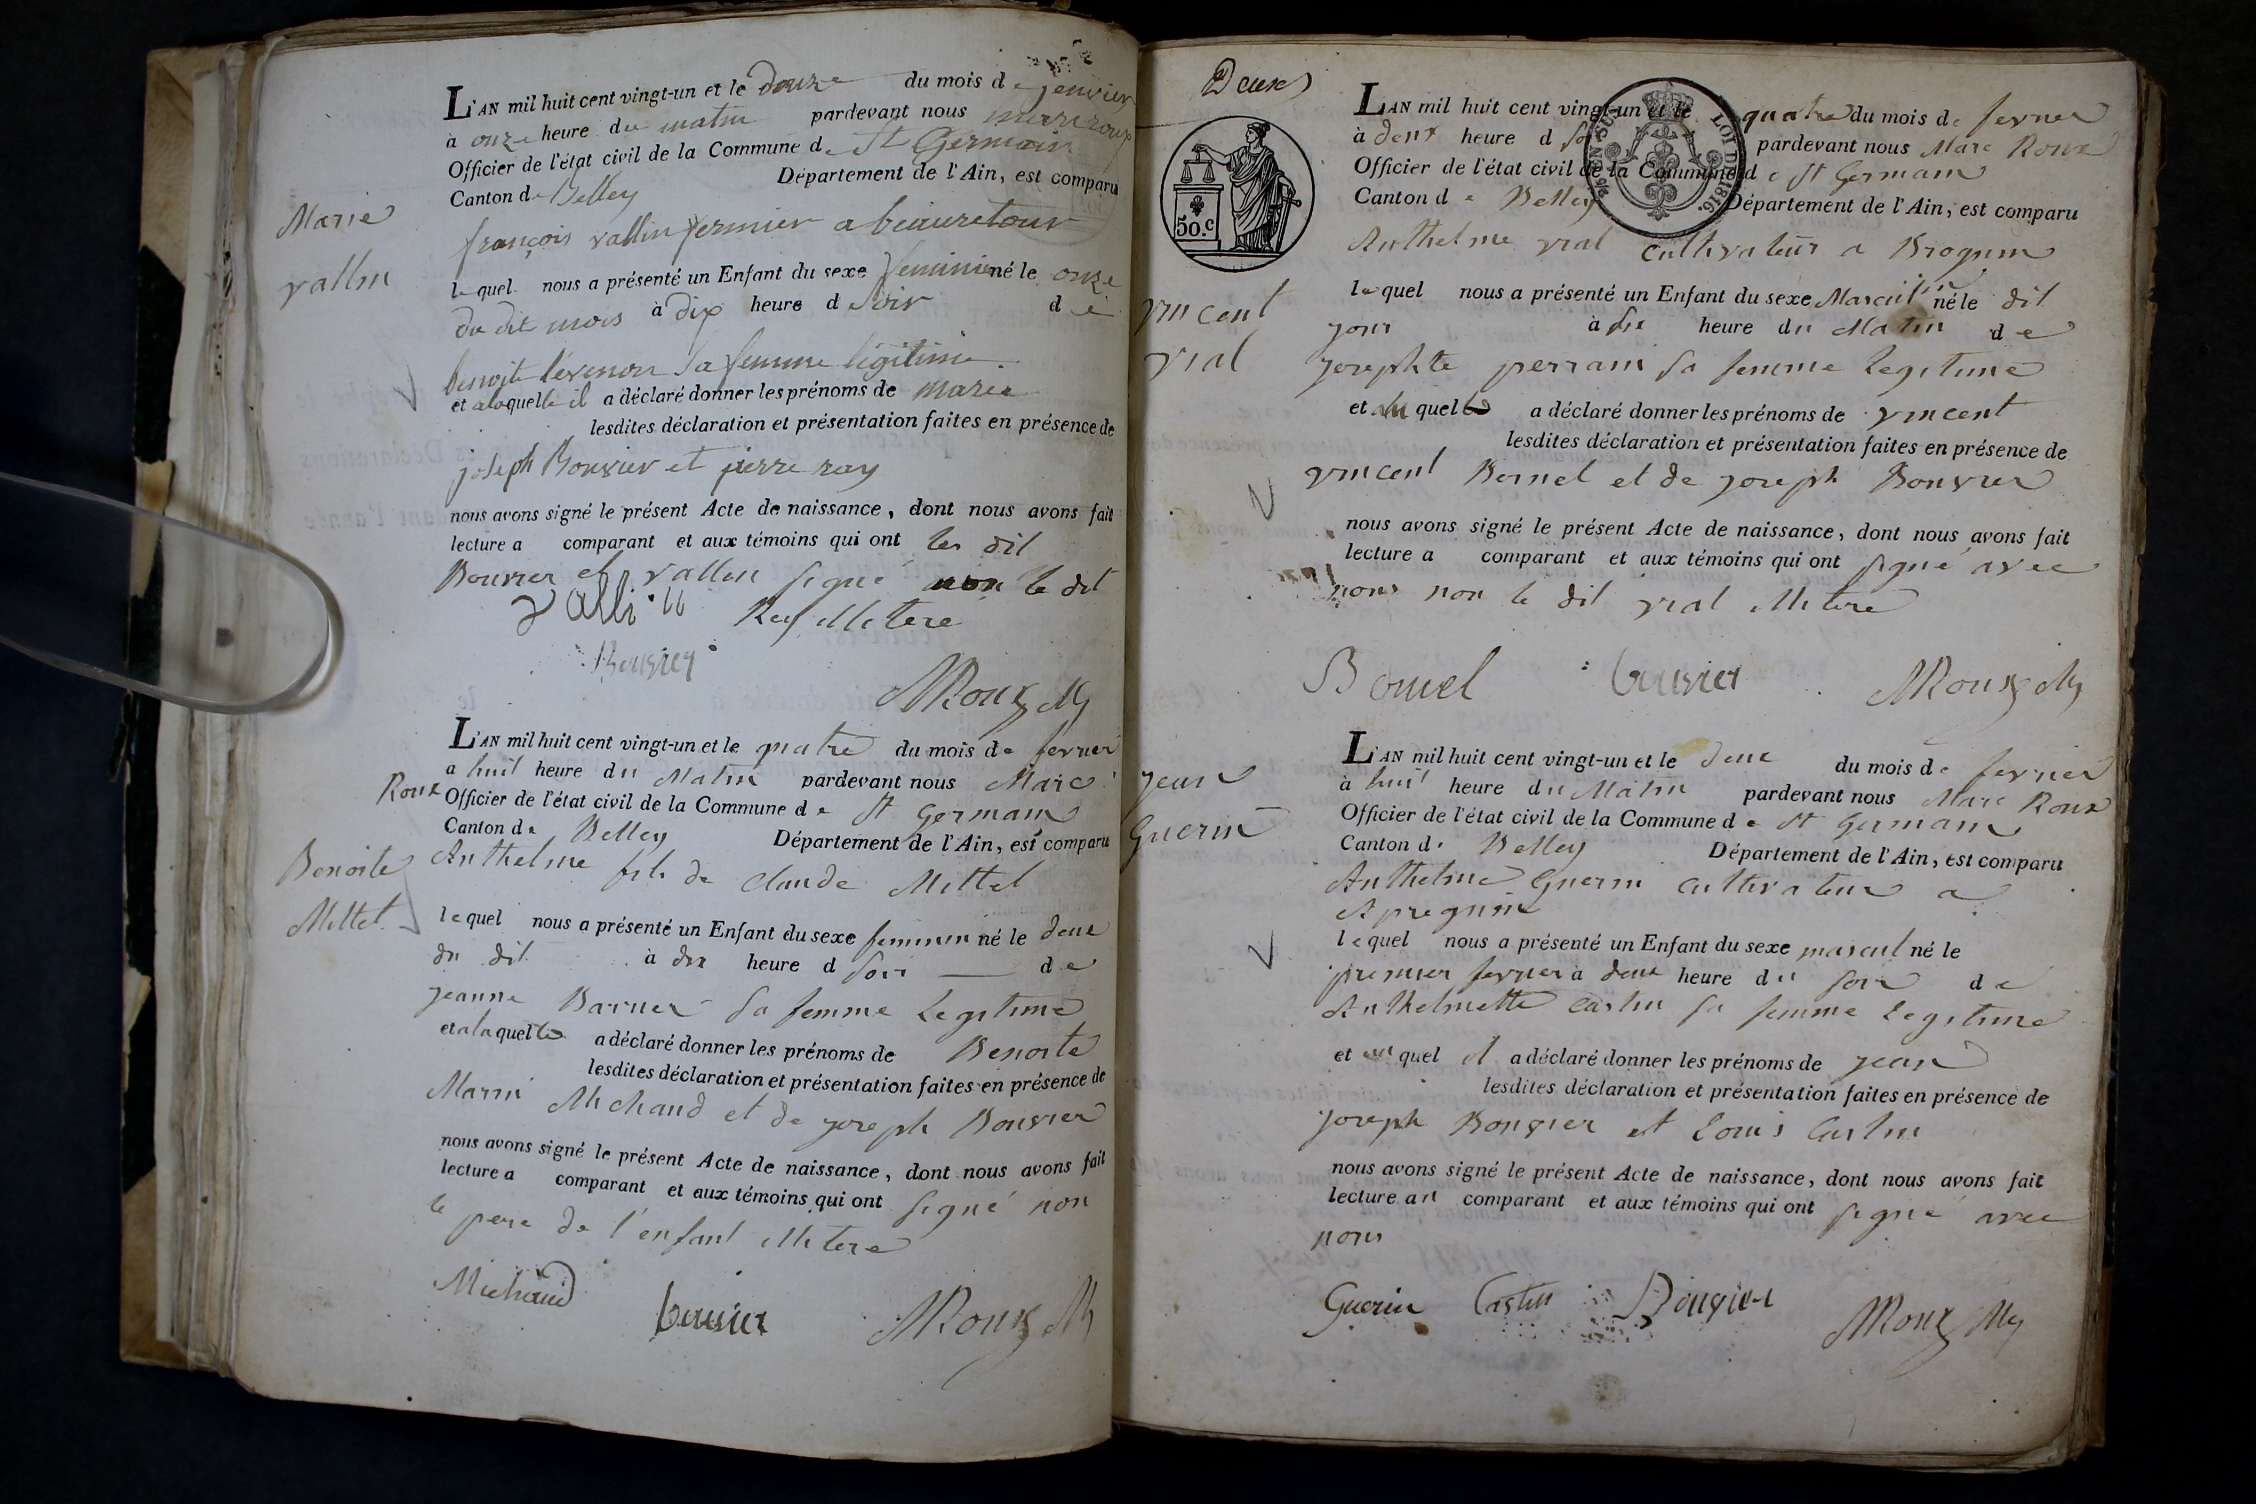 L'AN mil huit cent vingt-un et le douze du mois de jenvier
à onze heure du matin pardevant nous marc roux
Officier de l'état civil de la Commune de St Germain
Canton de Belley Département de l'Ain, est comparu
françois vallin fermier a beauretour
lequel nous a présenté un Enfant du sexe feminin né le onze
du dit mois à dix heure d soir de
benoite sa femme légitime
et a laquelle il a déclaré donner les prénoms de marie
lesdites déclaration et présentation faites en présence de
joseph Bouvier et pierre ray
nous avons signé le présent Acte de naissance, dont nous avons fait
lecture a comparant et aux témoins qui ont les dit
Bouvier et vallin signé non le dit
Rey illetere
Vallin
Bouvier
MRoux My
Marie
vallin
L'AN mil huit cent vingt-un et le quatre du mois de fevrier
a huit heure du Matin pardevant nous Marc
Roux Officier de l'état civil de la Commune de St Germain
Canton de Belley Département de l'Ain, est comparu
Anthelme fils de Claude Millet
lequel nous a présenté un Enfant du sexe feminin né le deux
du dit à dix heure d soir de
jeanne Barner sa femme Legitime
et a laquelle a déclaré donner les prénoms de Benoite
lesdites déclaration et présentation faites en présence de
Marin Michaud et de joseph Bouvier
nous avons signé le présent Acte de naissance, dont nous avons fait
lecture a comparant et aux témoins qui ont signé non
le pere de l'enfant illitere
Michaud bouvier MRoux M
Benoite
Millet
Deux
50.c
LOI DE 1816.
L'AN mil huit cent vingt-un et le quatre du mois de fevrier
à deux heure d soir pardevant nous Marc Roux
Officier de l'état civil de la Commune de St Germain
Canton de Belley Département de l'Ain, est comparu
Anthelme vial cultivateur a Brognin
lequel nous a présenté un Enfant du sexe Masculin né le dit
jour à six heure du Matin de
josephte perrain sa femme Legitime
et au quel a déclaré donner les prénoms de vincent
lesdites déclaration et présentation faites en présence de
vincent Bornel et de joseph Bouvier
nous avons signé le présent Acte de naissance, dont nous avons fait
lecture a comparant et aux témoins qui ont signé avec
nous non le dit vial illitere
Bornel bouvier MRoux My
vincent
vial
L'AN mil huit cent vingt-un et le deux du mois de fevrier
à huit heure du Matin pardevant nous Marc Roux
Officier de l'état civil de la Commune de St Germain
Canton de Belley Département de l'Ain, est comparu
Anthelme Guerin cultivateur a
Apregnin
lequel nous a présenté un Enfant du sexe mascul né le
premier fevrier à deux heure du soir de
Anthelmette Castin sa femme Legitime
et au quel il a déclaré donner les prénoms de jean
lesdites déclaration et présentation faites en présence de
joseph Bouvier et Louis Castin
nous avons signé le présent Acte de naissance, dont nous avons fait
lecture au comparant et aux témoins qui ont signé avec
nous
Guerin Castin Bouvier MRoux My
jean
Guerin